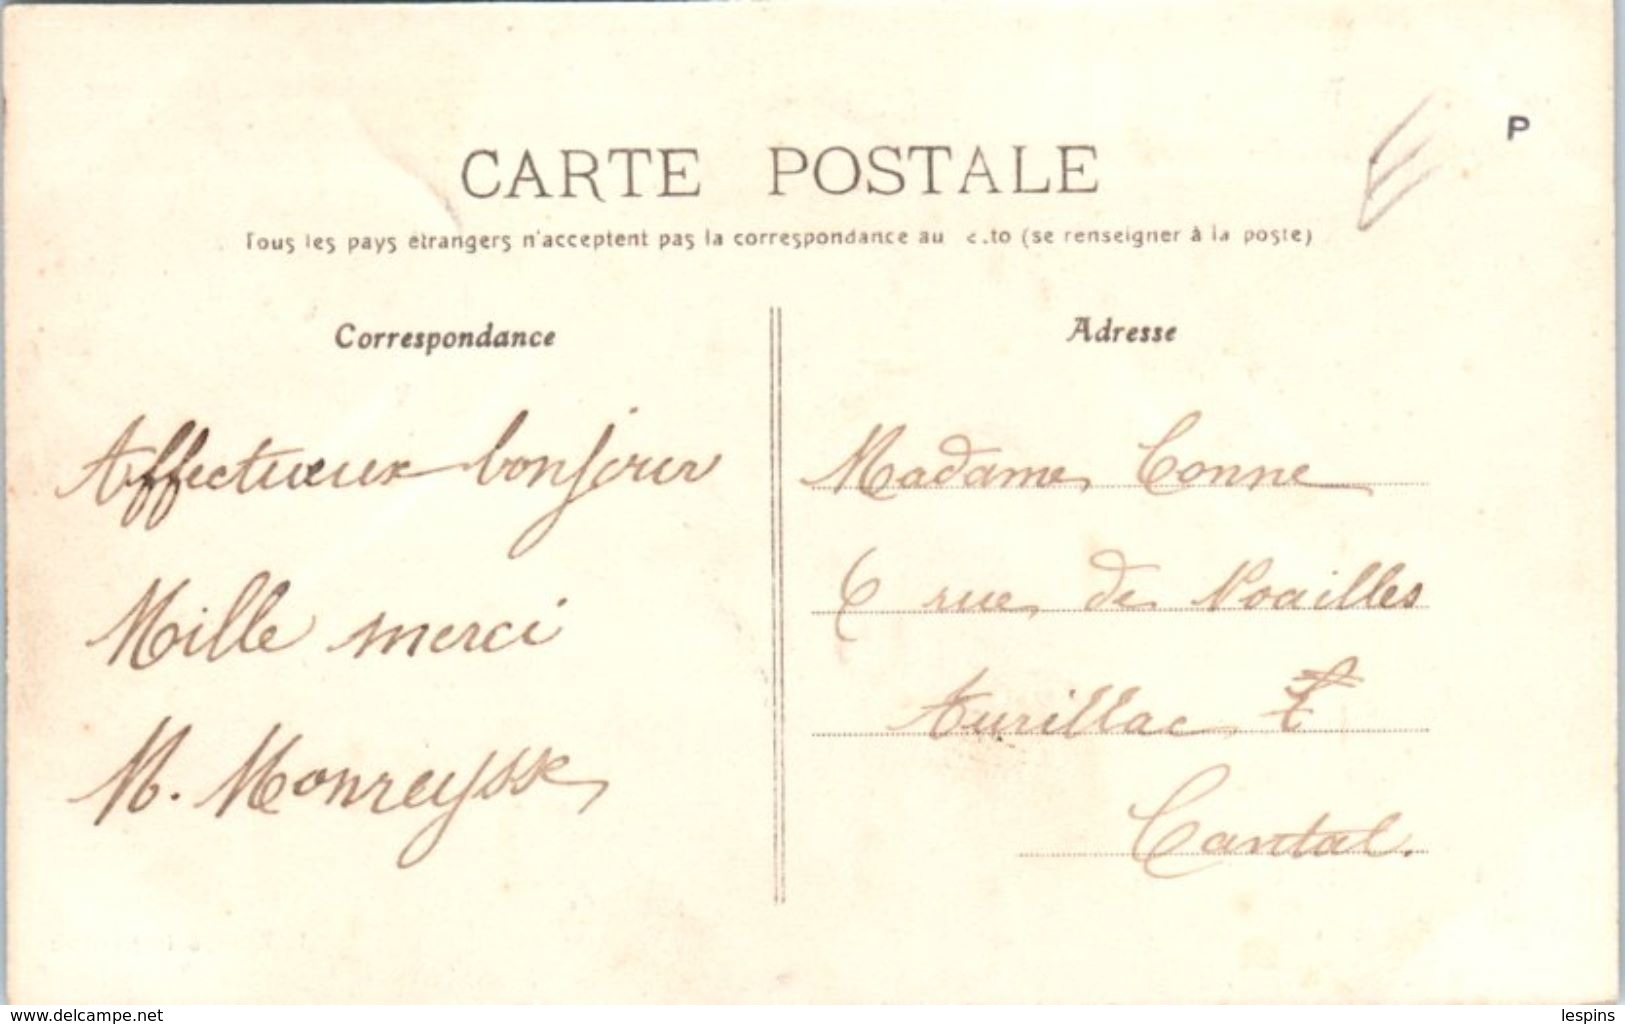 P
CARTE POSTALE
Tous les pays étrangers n'acceptent pas la correspondance au (se renseigner à la poste)
Correspondance
Affectueux bonjour
Mille merci
M. Monreysse
Adresse
Madame Conne
6 rue de Noailles
Aurillac
Cantal.
www.delcampe.net
lespins